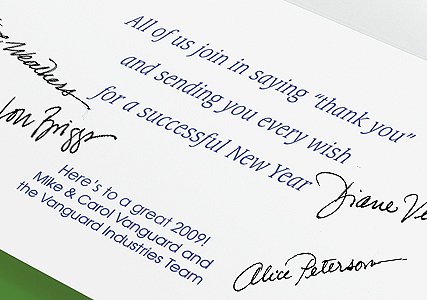 All of us join in saying “thank you”
and sending you every wish
for a successful New Year
Weathers
Lou Briggs
Here's to a great 2009!
Mike & Carol Vanguard and
the Vanguard Industries Team
Diane
Alice Peterson